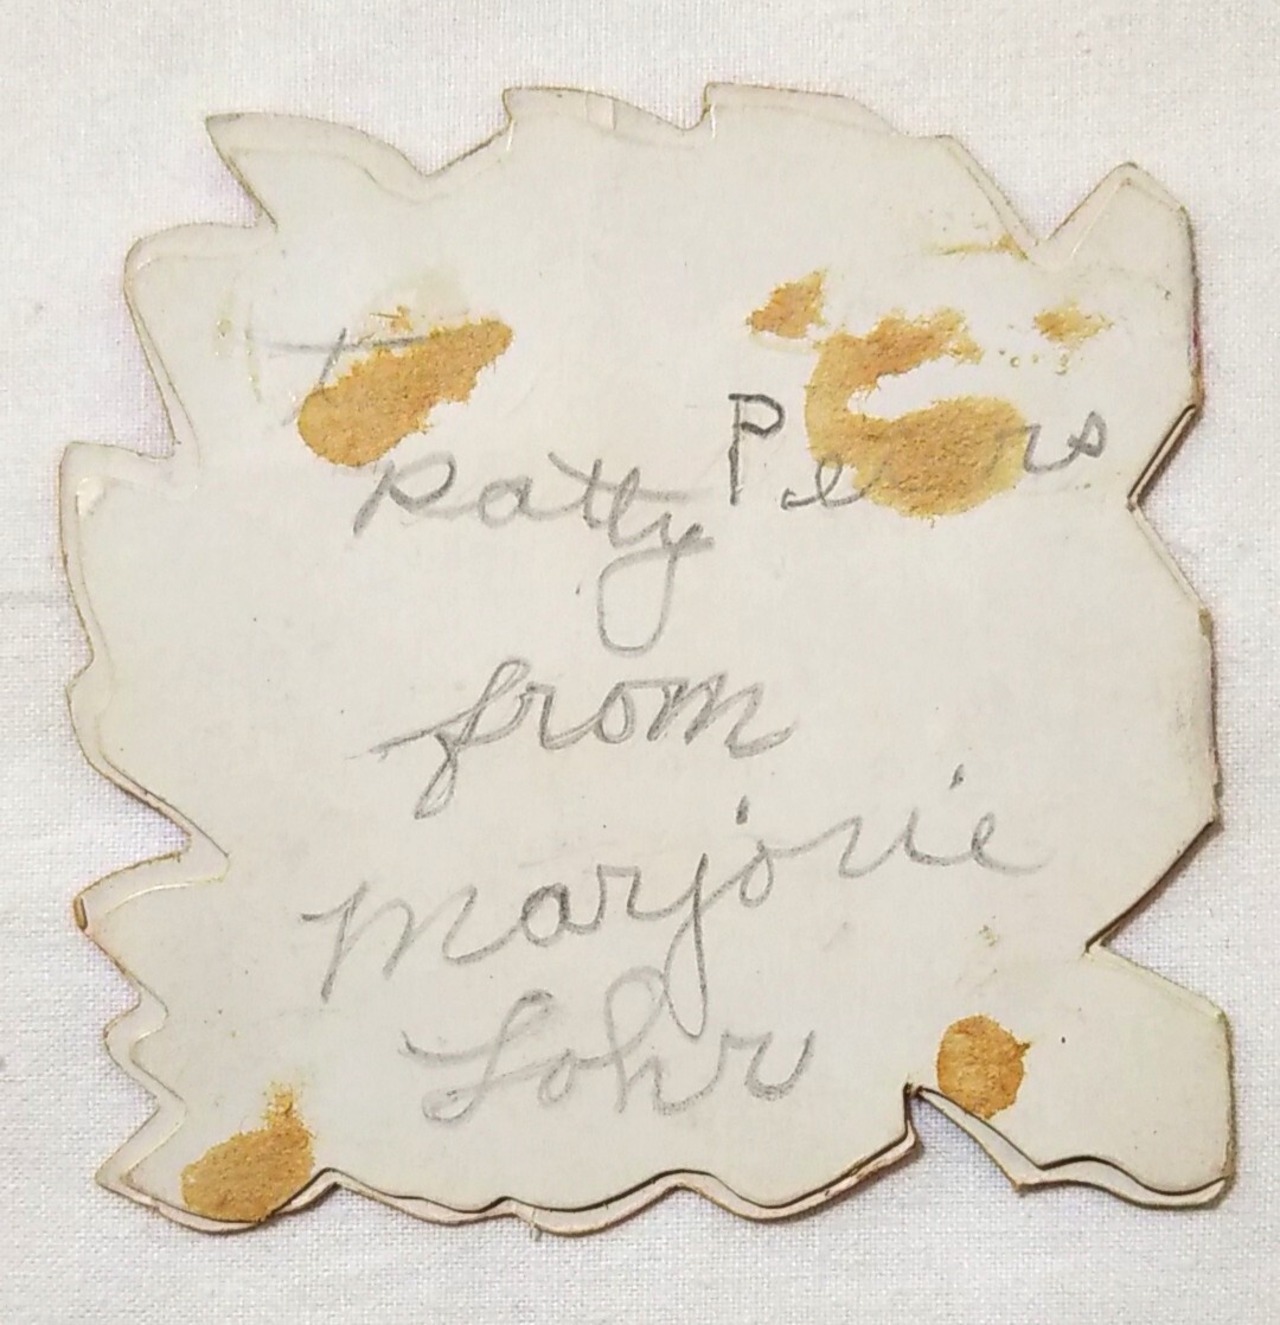 Patty
from
Marjorie
Lohr